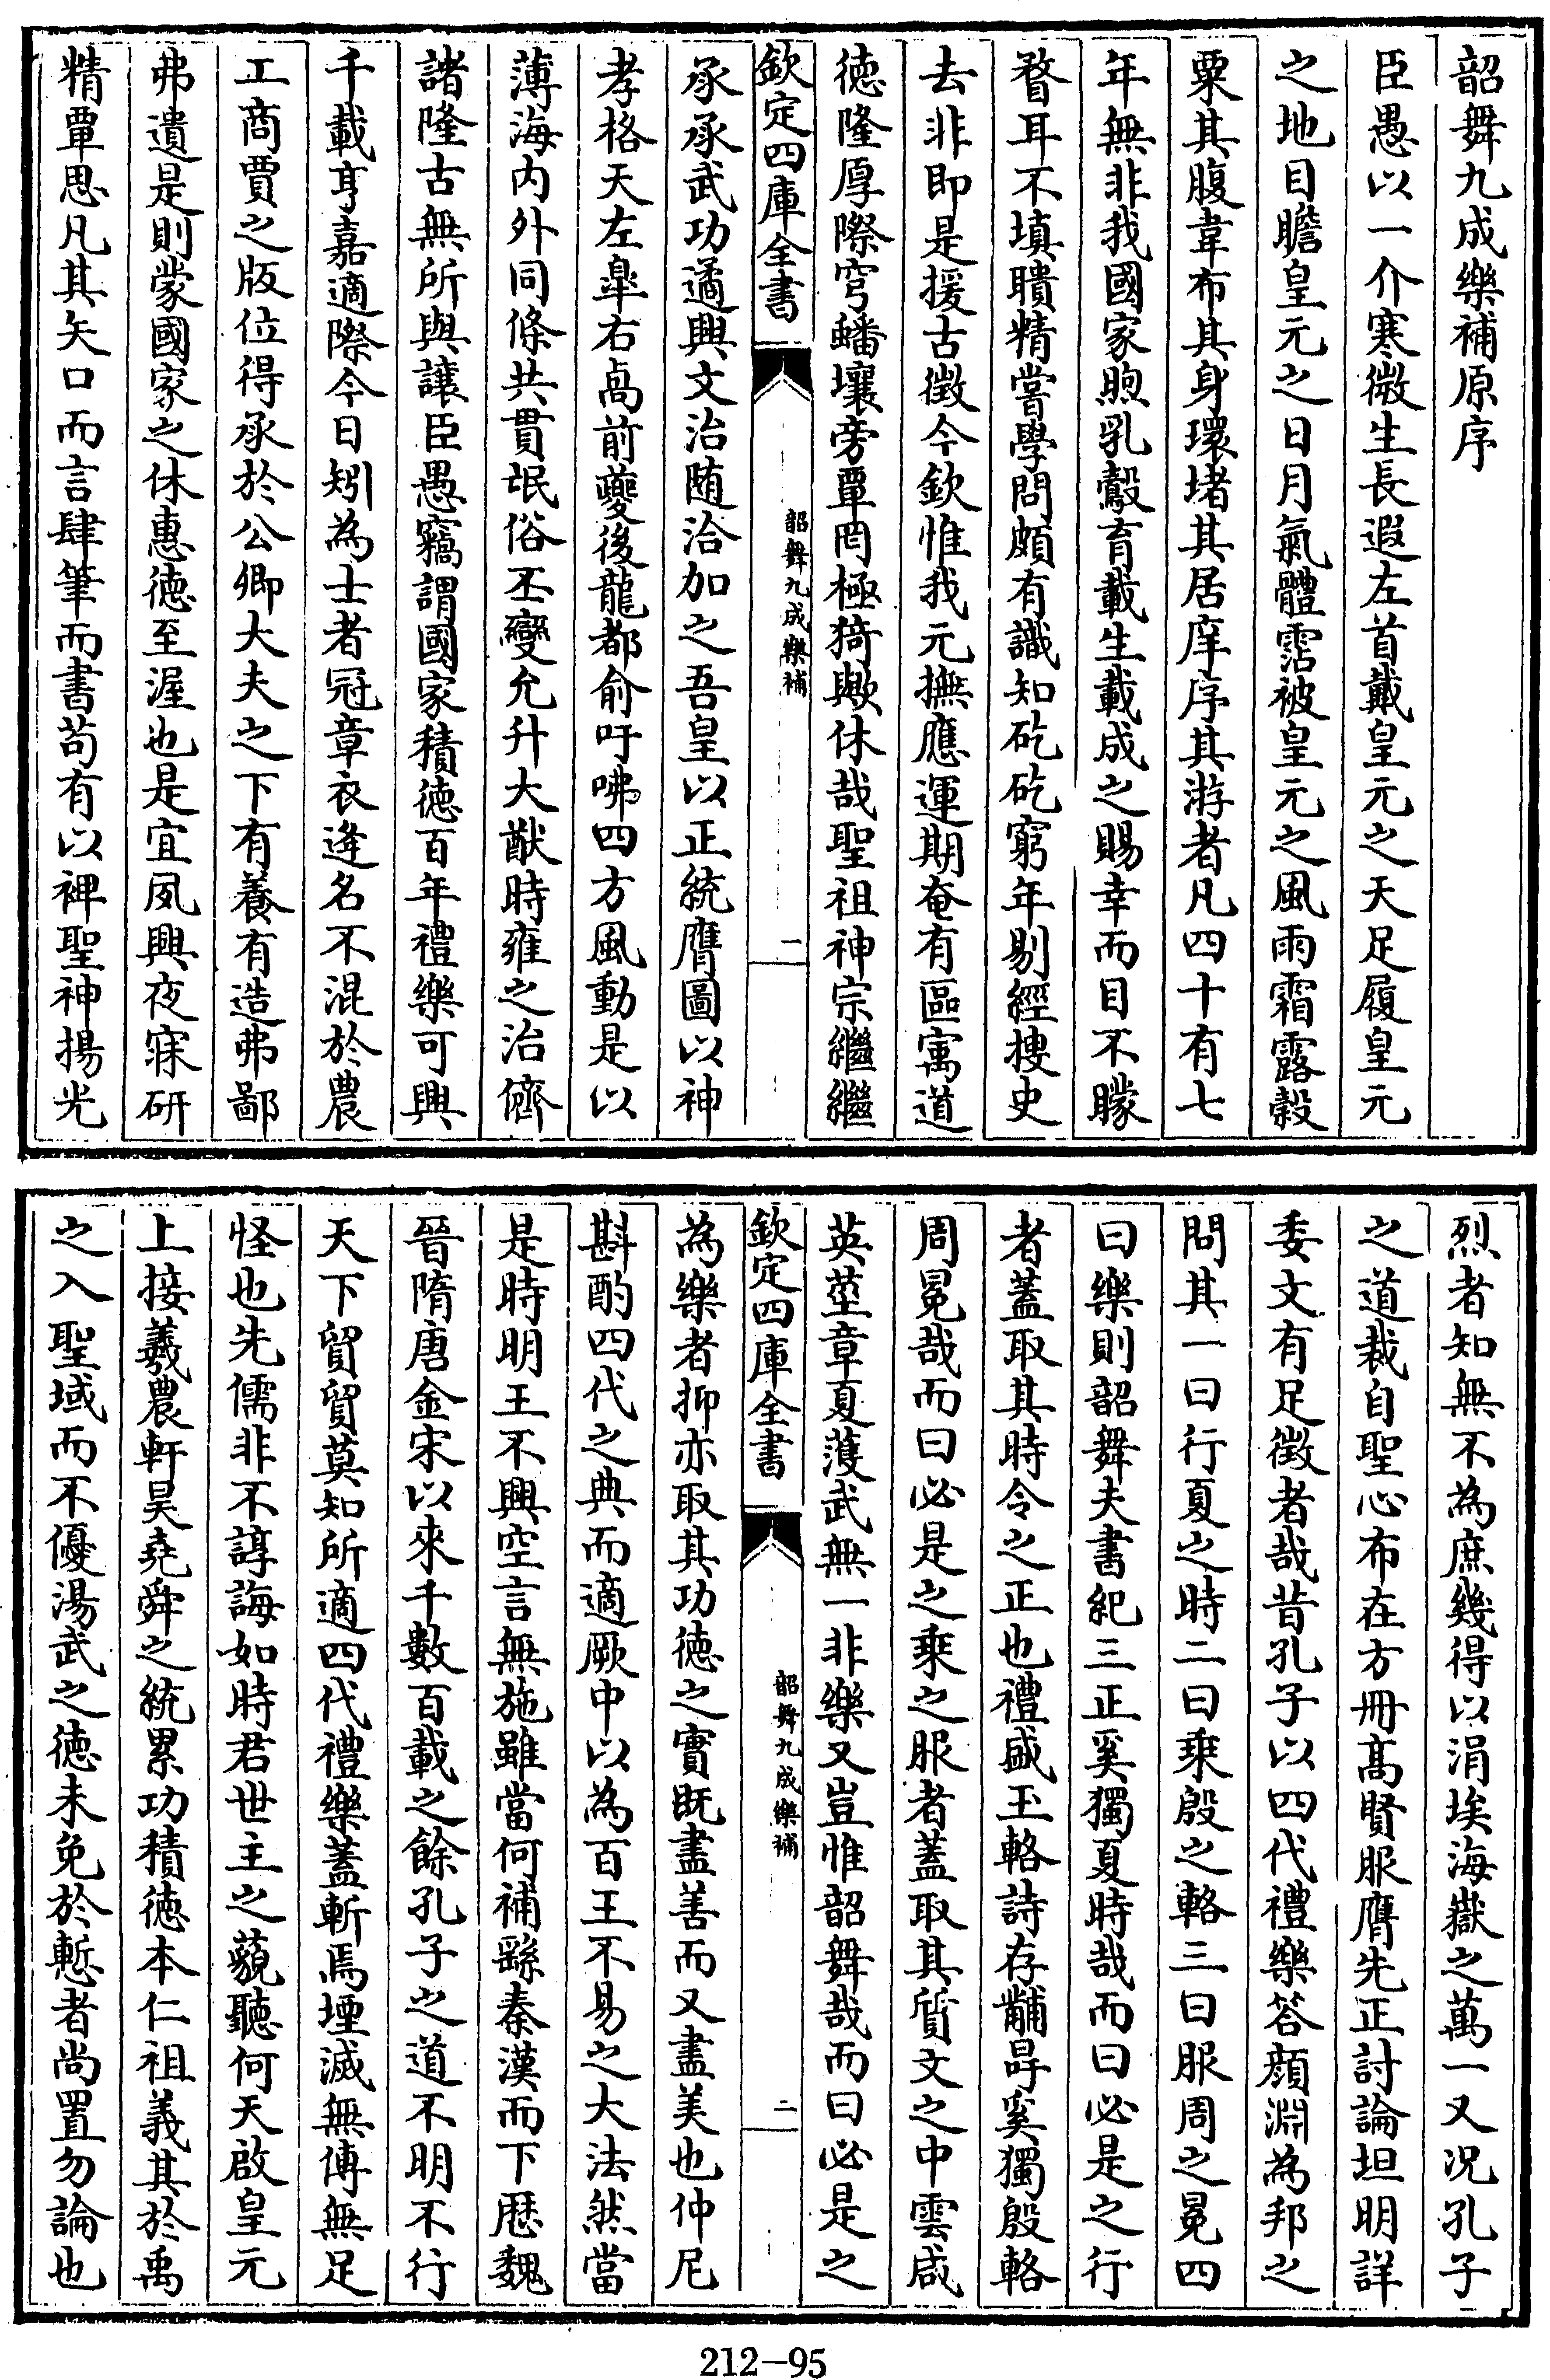 韶舞九成樂補原序
臣愚以一介寒微生長遐左首戴皇元之天足履皇元
之地目瞻皇元之日月氣體霑被皇元之風雨霜露穀
粟其腹韋布其身環堵其居庠序其游者凡四十有七
年無非我國家煦乳鷇育載生載成之賜幸而目不矇
瞀耳不填聵精嘗學問頗有識知矻矻窮年剔經摟史
去非即是援古徵今欽惟我元撫應運期奄有區寓道
德隆厚際穹蟠壤旁覃罔極猗歟休哉聖祖神宗繼繼
欽定四庫全書
韶舞九成樂補
一
承承武功遹興文治随洽加之吾皇以正統膺圖以神
孝格天左臯右卨前夔後龍都俞吁咈四方風動是以
薄海内外同條共貫氓俗丕變允升大猷時雍之治儕
諸隆古無所與讓臣愚竊謂國家積德百年禮樂可興
千載亨嘉適際今日矧為士者冠章衣逄名不混於農
工商賈之版位得承於公卿大夫之下有養有造弗鄙
弗遺是則蒙國家之休惠德至渥也是宜夙興夜寐研
精覃思凡其矢口而言肆筆而書苟有以裨聖神揚光
烈者知無不為庶幾得以涓埃海嶽之萬一又况孔子
之道裁自聖心布在方冊髙賢服膺先正討論坦明詳
委文有足徵者哉昔孔子以四代禮樂答顔淵為邦之
問其一曰行夏之時二曰乗殷之輅三曰服周之冕四
曰樂則韶舞夫書紀三正奚獨夏時哉而曰必是之行
者蓋取其時令之正也禮盛玉輅詩存黼冔奚獨殷輅
周冕哉而曰必是之乗之服者蓋取其質文之中雲咸
英莖章夏濩武無一非樂又豈惟韶舞哉而曰必是之
欽定四庫全書
韶舞九成樂補
二
為樂者抑亦取其功德之實既盡善而又盡美也仲尼
斟酌四代之典而適厥中以為百王不易之大法然當
是時明王不興空言無施雖當何補繇秦漢而下歴魏
晉隋唐金宋以來千數百載之餘孔子之道不明不行
天下貿貿莫知所適四代禮樂蓋斬焉堙滅無傳無足
怪也先儒非不諄誨如時君世主之藐聽何天啟皇元
上接羲農軒昊堯舜之統累功積德本仁祖義其於禹
之入聖域而不優湯武之德未免於慙者尚置勿論也
212-95